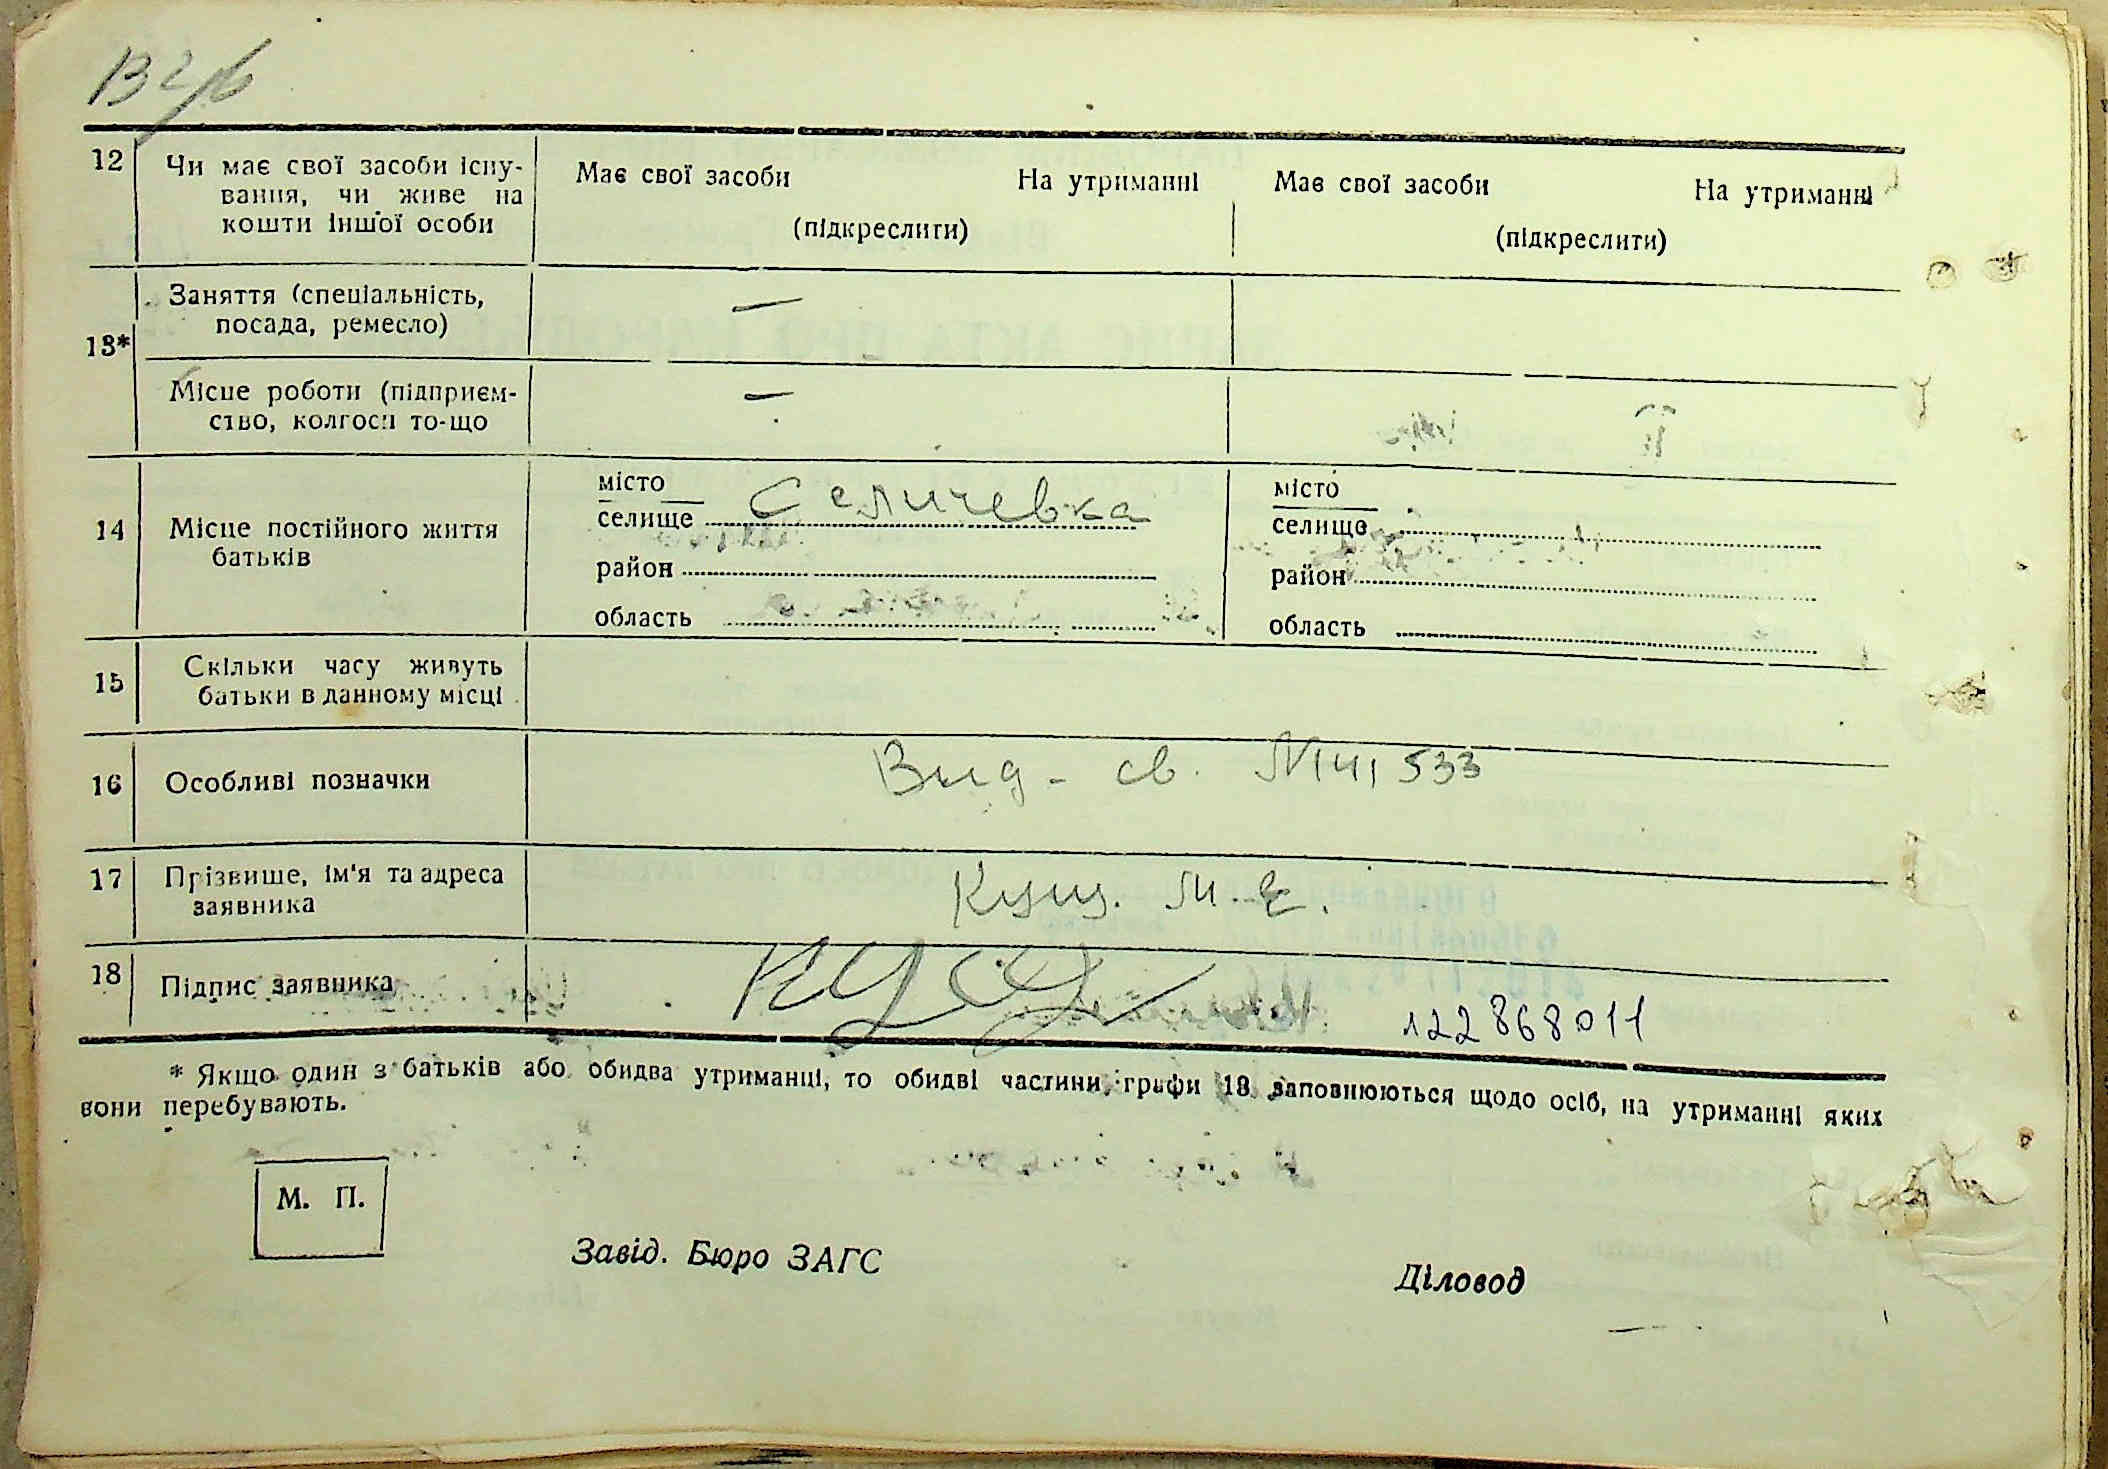 12 Чи має свої засоби існу-
вання, чи живе на
кошти іншої особи
Має свої засоби На утриманні
(підкреслити)
Має свої засоби На утриманні
(підкреслити)
13* Заняття (спеціальність,
посада, ремесло)
—
Місце роботи (підприєм-
ство, колгосп то-що
—
14 Місце постійного життя
батьків
місто
селище Селичевка
район
область
місто
селище
район
область
15 Скільки часу живуть
батьки в данному місці
16 Особливі позначки
Вид - св. № 141533
17 Прізвище, ім'я та адреса
заявника
Кущ. М. Е.
18 Підпис заявника
122868011
* Якщо один з батьків або обидва утриманці, то обидві частини графи 13 заповнюються щодо осіб, на утриманні яких
вони перебувають.
М. П.
Завід. Бюро ЗАГС
Діловод